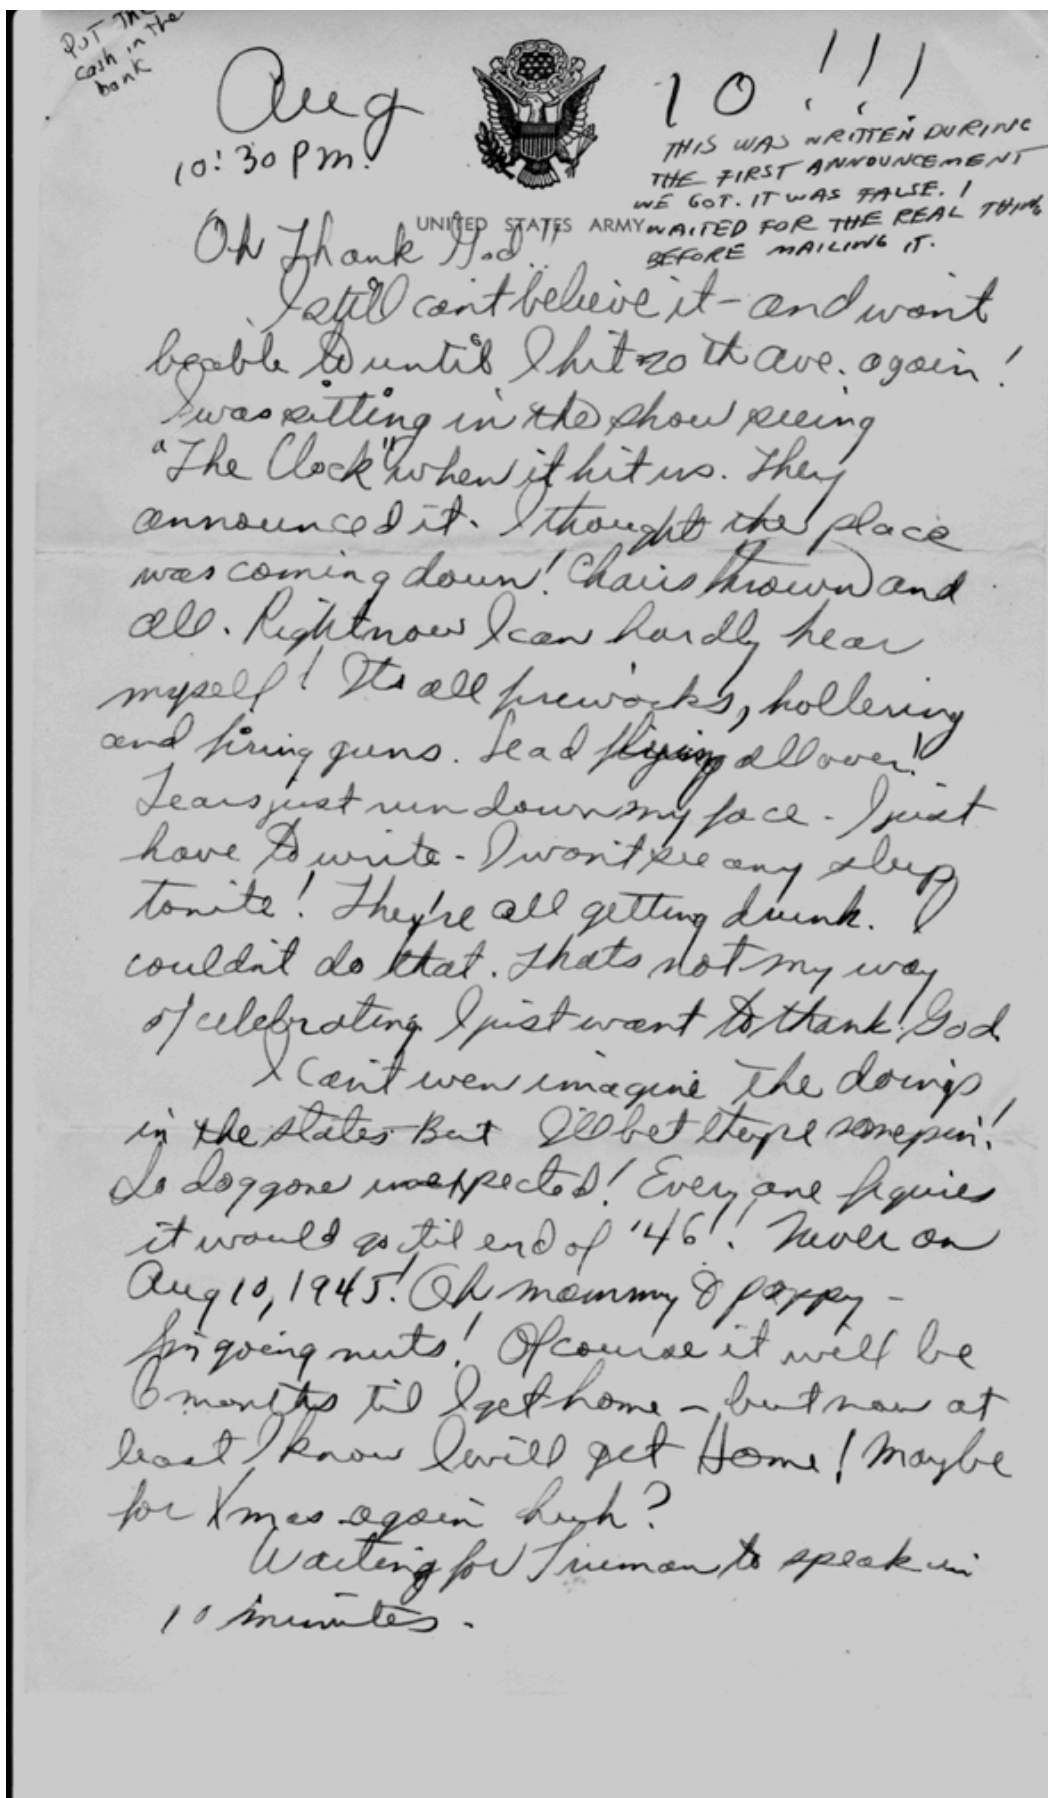 PUT THE
cash in the
bank
Aug 10!!!
10:30 PM.
THIS WAS WRITTEN DURING
THE FIRST ANNOUNCEMENT
WE GOT. IT WAS FALSE. I
WAITED FOR THE REAL THING
BEFORE MAILING IT.
UNITED STATES ARMY
Oh Thank God!!
I still can't believe it - and wont
be able to until I hit 20th Ave. again!
I was sitting in the show seeing
"The Clock" when it hit us. They
announced it. I thought the place
was coming down! Chairs thrown and
all. Right now I can hardly hear
myself! Its all fireworks, hollering
and firing guns. Lead flying all over!
Tears just run down my face - I just
have to write - I won't see any sleep
tonite! They're all getting drunk. I
couldn't do that. Thats not my way
of celebrating. I just want to thank God.
I can't even imagine the doings
in the states. But I'll bet theyre somepin!
So doggone unexpected! Everyone figures
it would go til end of '46! Never on
Aug 10, 1945! Oh mommy & pappy -
I'm going nuts! Of course it will be
6 months til I get home - but now at
least I know I will get Home! Maybe
for Xmas again huh?
Waiting for Truman to speak in
10 minutes.